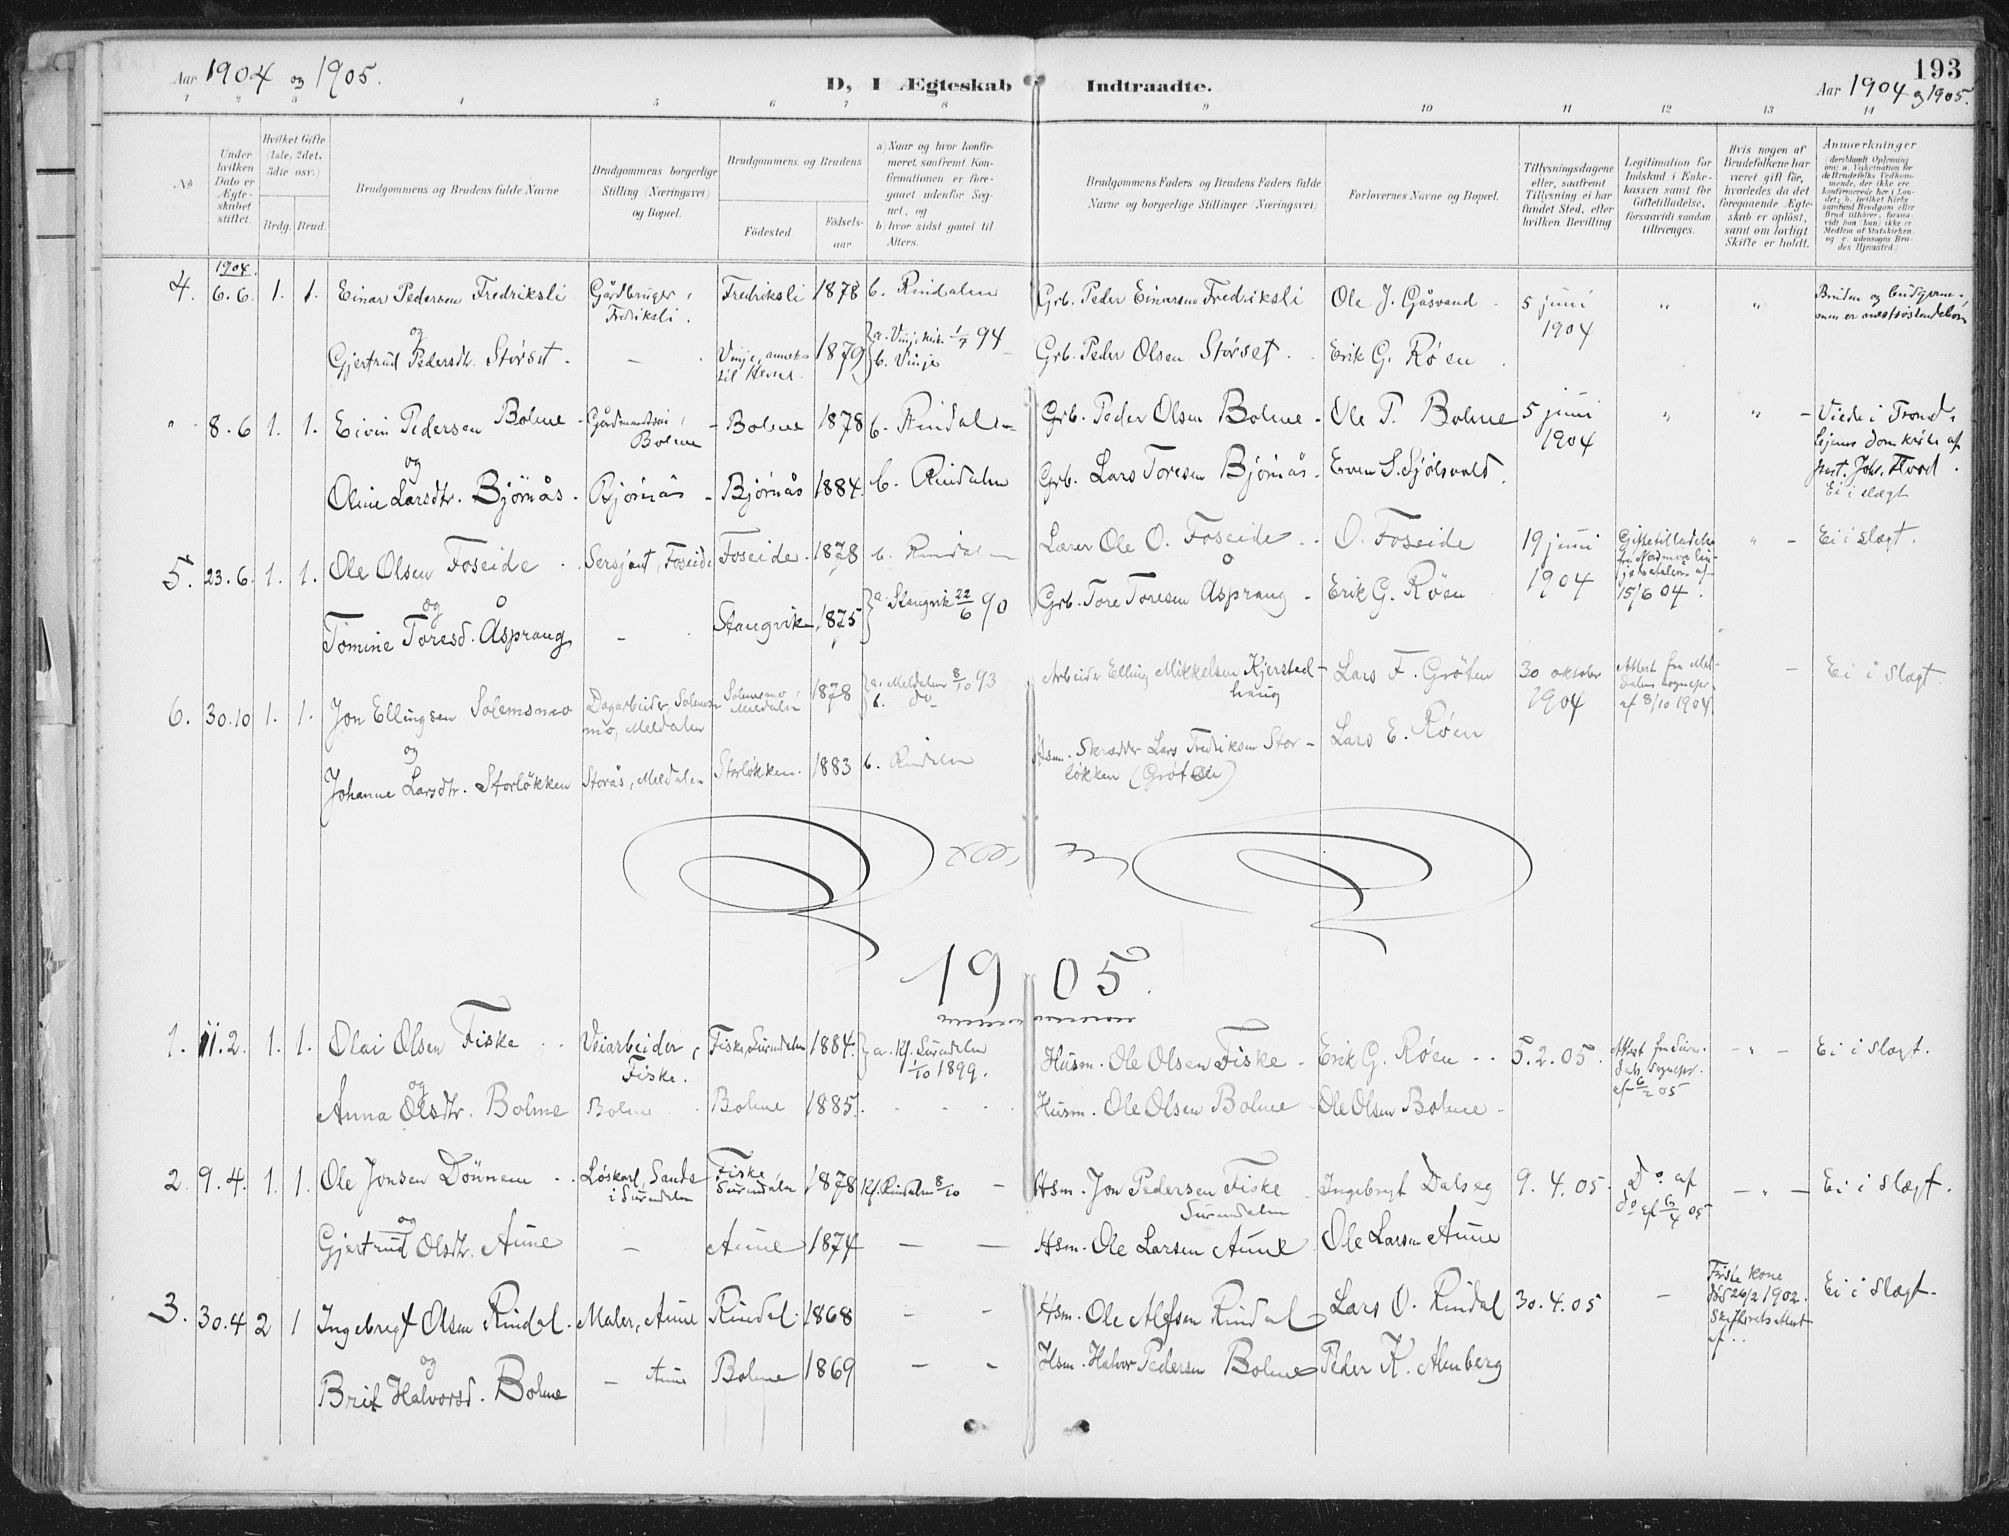 Aar 1904 og 1905.
D, I Ægteskab Indtraadte.
193
Aar 1904 og 1905.
1 2 3 4 5 6 7 8 9 10 11 12 13 14
No
Under hvilken Dato er Ægteskabet stiftet.
Hvilket Gifte (1ste, 2det, 3die osv.)
Brdg. Brud.
Brudgommens og Brudens fulde Navne
Brudgommens borgerlige Stilling (Næringsvei) og Bopæl.
Brudgommens og Brudens
Fødested.
Fødselsaar
a) Naar og hvor konfirmeret, saafremt Konfirmationen er foregaaet udenfor Sognet, og
b) hvor sidst gaaet til Alters.
Brudgommens Faders og Brudens Faders fulde Navne og borgerlige Stillinger (Næringsvei)
Forlovernes Navne og Bopæl.
Tillysningsdagene eller, saafremt Tillysning ei har fundet Sted, efter hvilken Bevilling
Legitimation for Indskud i Enkekassen samt for Giftetilladelse, forsaavidt saadan tiltrænges.
Hvis nogen af Brudefolkene har været gift før, hvorledes da det foregaaende Ægteskab er opløst, samt om lovligt Skifte er holdt.
Anmerkninger
1904.
4. 6.6. 1. 1. Einar Pedersen Fredriksli Gårdbruger, Fredriksli. Fredriksli 1878 b. Rindalen Grb. Peder Einarsen Fredriksli Ole J. Gåsvand 5 juni 1904 " "
og
Gjertrud Pedersdtr. Storset. - Vinje, anneks til Hevne. 1879 a. Vinje kirke 1/7 94 b. Vinje Grb. Peder Olsen Storset. Erik G. Røen
" 8.6 1. 1. Eivin Pedersen Bolme Bolme Bolme 1878 b. Rindalen Grb. Peder Olsen Bolme Ole P. Bolme 5 juni 1904 " " Viede i Trondhjems domkirke af
og
Oline Larsdtr. Bjørnås. Bjørnås Bjørnås 1884. b. Rindalen Grb. Lars Toresen Bjørnås Even S. Sjølsvold. Johs. Flood. Ei i slægt
5. 23.6. 1. 1. Ole Olsen Foseide Sersjant, Foseide Foseide. 1878 b. Rindalen Lærer Ole O. Foseide O. Foseide 19 juni 1904 Giftetilladelse fra Nordmøre linjebataljon af 15/6 04. " Ei i slægt.
og
Tomine Toresd. Åsprang - Stangvik 1875 a. Stangvik 22/6 90 Grb. Tore Toresen Åsprang Erik G. Røen
6. 30.10 1. 1. Jon Ellingsen Solemsmo Dagarbeider, Solemsmo, Meldalen Solemsmo, Meldalen 1878 a. Meldalen 8/10 93 b. do Arbeider Elling Mikkelsen Kjerstadhaug Lars F. Grøten 30 oktober 1904 Attest fra Meldalens sognepr. af 8/10 1904. - Ei i slægt
og
Johanne Larsdtr. Storløkken Storås, Meldalen Storløkken. 1883 b. Rindalen Hsm. Skrædder Lars Fredriksen Storløkken (Grøten) Lars E. Røen
1905.
1. 11.2. 1. 1. Olai Olsen Fiske Veiarbeider, Fiske. Fiske, Surendalen 1884. a. Kf. Surendalen 1/10 1899. Husm. Ole Olsen Fiske Erik G. Røen 5.2.05. Attest fra Surendals sognepr. af 6/2 05 - " - Ei i slægt.
og
Anna Olsdtr. Bolme Bolme Bolme 1885. Husm. Ole Olsen Bolme Ole Olsen Bolme
2. 9.4. 1. 1. Ole Jonsen Dønnem Løskarl, Sande i Surendalen Fiske Surendalen 1878 Kf. Rindalen 8/10 Hsm. Jon Pedersen Fiske Surendalen Ingebrigt Dalseg 9.4.05. Do af do af 6/4 05 - " - Ei i slægt.
og
Gjertrud Olsdtr. Aune - Aune 1874 - - Hsm. Ole Larsen Aune Ole Larsen Aune
3. 30.4 2 1 Ingebrigt Olsen Rindal. Maler, Aune Rindal. 1868 - - Hsm. Ole Alfsen Rindal Lars O. Rindal 30.4.05 - Første kone død 26/2 1902. Skifterets attest af.. Ei i slægt.
og
Brit Halvorsd. Bolme - Aune Bolme 1869 - - Hsm. Halvor Pedersen Bolme Peder K. Almberg